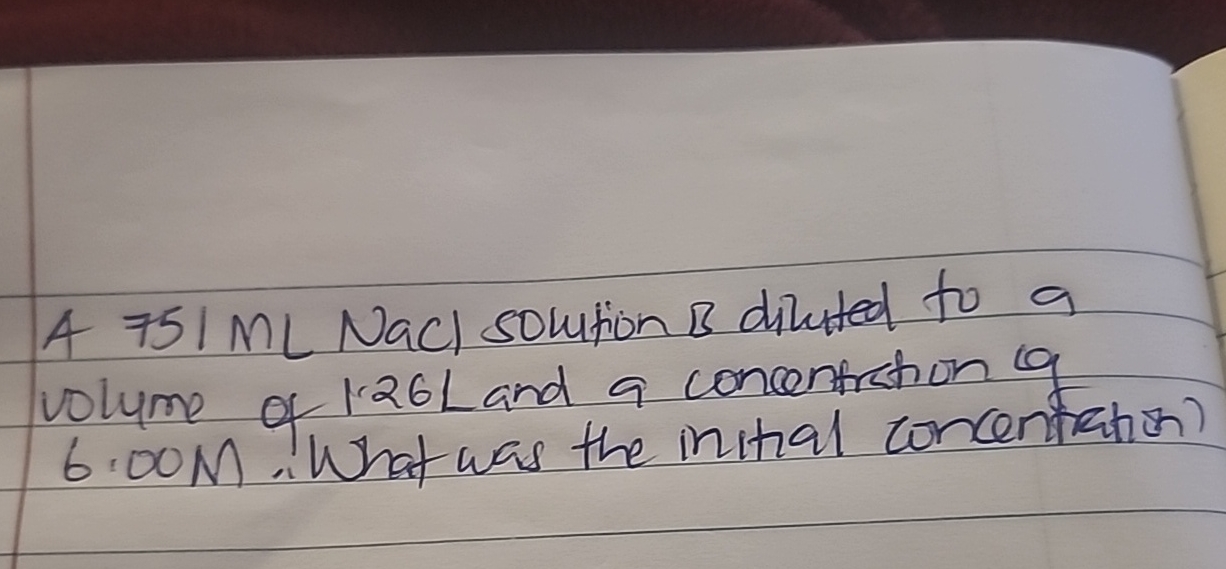 A 751 ML Nacl solution is diluted to a
volume of 1.26L and a concentration of
6.00M. What was the initial concentration)